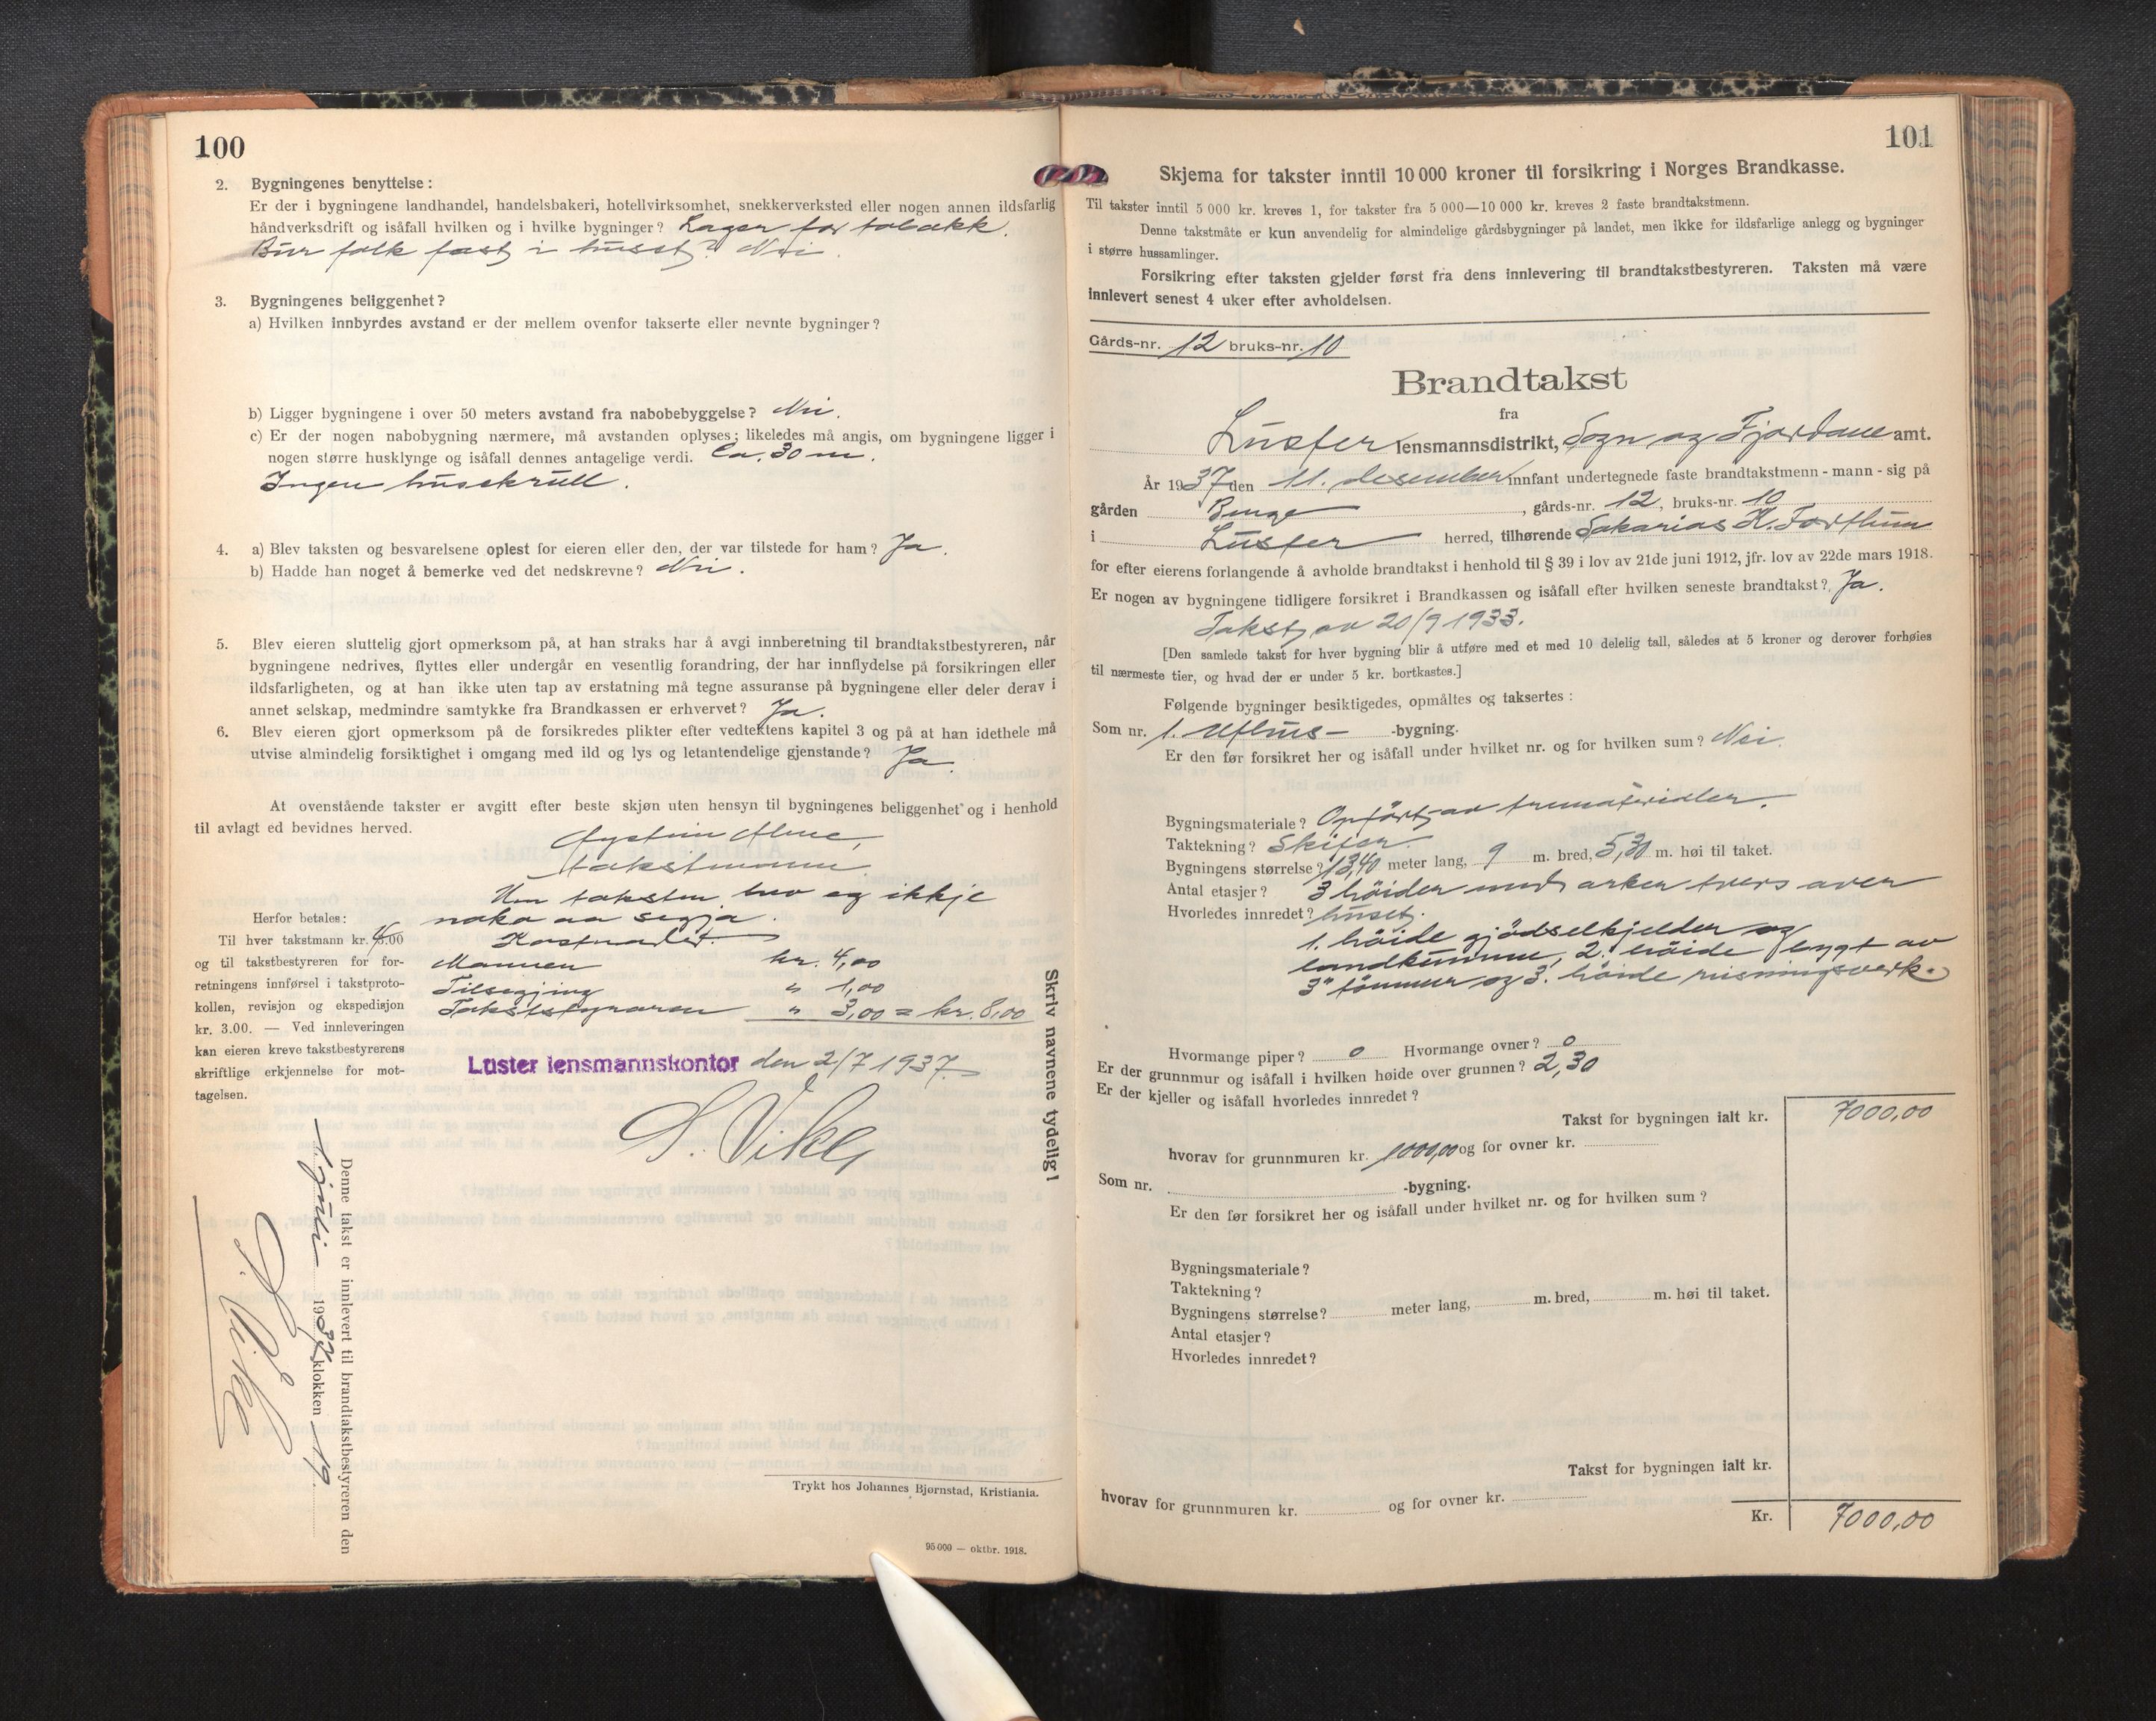 100
2. Bygningenes benyttelse :
Er der i bygningene landhandel, handelsbakeri, hotellvirksomhet, snekkerverksted eller nogen annen ildsfarlig
håndverksdrift og isåfall hvilken og i hvilke bygninger? Lager for tobakk.
Bur folk fast i huset? Nei.
3. Bygningenes beliggenhet?
a) Hvilken innbyrdes avstand er der mellem ovenfor takserte eller nevnte bygninger?
b) Ligger bygningene i over 50 meters avstand fra nabobebyggelse? Nei.
c) Er der nogen nabobygning nærmere, må avstanden oplyses; likeledes må angis, om bygningene ligger i
nogen større husklynge og isåfall dennes antagelige verdi. Ca. 30 m.
Ingen husekrull.
4. a) Blev taksten og besvarelsene oplest for eieren eller den, der var tilstede for ham? Ja.
b) Hadde han noget å bemerke ved det nedskrevne? Nei.
5. Blev eieren sluttelig gjort opmerksom på, at han straks har å avgi innberetning til brandtakstbestyreren, når
bygningene nedrives, flyttes eller undergår en vesentlig forandring, der har innflydelse på forsikringen eller
ildsfarligheten, og at han ikke uten tap av erstatning må tegne assuranse på bygningene eller deler derav i
annet selskap, medmindre samtykke fra Brandkassen er erhvervet? Ja.
6. Blev eieren gjort opmerksom på de forsikredes plikter efter vedtektens kapitel 3 og på at han idethele må
utvise almindelig forsiktighet i omgang med ild og lys og letantendelige gjenstande? Ja.
At ovenstående takster er avgitt efter beste skjøn uten hensyn til bygningenes beliggenhet og i henhold
til avlagt ed bevidnes herved.
takstmann.
Um taksten hev eg ikkje
noko aa segja.
Kostnader.
Mannen kr. 4,00
Tilsegjing " 1,00
Takststyraren " 3,00 = kr. 8,00
Herfor betales:
Til hver takstmann kr. 4.00
og til takstbestyreren for for-
retningens innførsel i takstproto-
kollen, revisjon og ekspedisjon
kr. 3.00. — Ved innleveringen
kan eieren kreve takstbestyrerens
skriftlige erkjennelse for mot-
tagelsen.
Luster lensmannskontor den 2/7 1937.
S. Vike
Skriv navnene tydelig!
Denne takst er innlevert til brandtakstbestyreren den
1. juli 1937 klokken 19.
S. Vike
Trykt hos Johannes Bjørnstad, Kristiania.
95 000 — oktbr. 1918.
101
Skjema for takster inntil 10 000 kroner til forsikring i Norges Brandkasse.
Til takster inntil 5 000 kr. kreves 1, for takster fra 5 000—10 000 kr. kreves 2 faste brandtakstmenn.
Denne takstmåte er kun anvendelig for almindelige gårdsbygninger på landet, men ikke for ildsfarlige anlegg og bygninger
i større hussamlinger.
Forsikring efter taksten gjelder først fra dens innlevering til brandtakstbestyreren. Taksten må være
innlevert senest 4 uker efter avholdelsen.
Gårds-nr. 12 bruks-nr. 10
Brandtakst
fra
Luster lensmannsdistrikt, Sogn og Fjordane amt.
År 1937 den 11. desember innfant undertegnede faste brandtakstmenn - mann - sig på
gården Benge, gårds-nr. 12, bruks-nr. 10
i Luster herred, tilhørende Sakarias H. Forthun
for efter eierens forlangende å avholde brandtakst i henhold til § 39 i lov av 21de juni 1912, jfr. lov av 22de mars 1918.
Er nogen av bygningene tidligere forsikret i Brandkassen og isåfall efter hvilken seneste brandtakst? Ja.
Takst av 20/9 1933.
[Den samlede takst for hver bygning blir å utføre med et med 10 delelig tall, således at 5 kroner og derover forhøies
til nærmeste tier, og hvad der er under 5 kr. bortkastes.]
Følgende bygninger besiktigedes, opmåltes og taksertes :
Som nr. 1. Uthus- -bygning.
Er den før forsikret her og isåfall under hvilket nr. og for hvilken sum? Nei.
Bygningsmateriale? Opført av trematerialer.
Taktekning? Skifer.
Bygningens størrelse? 13,40 meter lang, 9 m. bred, 5,30 m. høi til taket.
Antal etasjer? 3 höider med arker tvers over
Hvorledes innredet? huset.
1. höide gjödselkjelder og
landkumme, 2. höide bygt av
3" tömmer og 3. höide reisningsverk.
Hvormange piper? 0 Hvormange ovner? 0
Er der grunnmur og isåfall i hvilken høide over grunnen? 2,30
Er der kjeller og isåfall hvorledes innredet?
Takst for bygningen ialt kr. 7000,00
hvorav for grunnmuren kr. 1000,00 og for ovner kr.
Som nr. -bygning.
Er den før forsikret her og isåfall under hvilket nr. og for hvilken sum?
Bygningsmateriale?
Taktekning?
Bygningens størrelse? meter lang, m. bred, m. høi til taket.
Antal etasjer?
Hvorledes innredet?
Takst for bygningen ialt kr.
hvorav for grunnmuren kr. og for ovner kr.
Kr. 7000,00